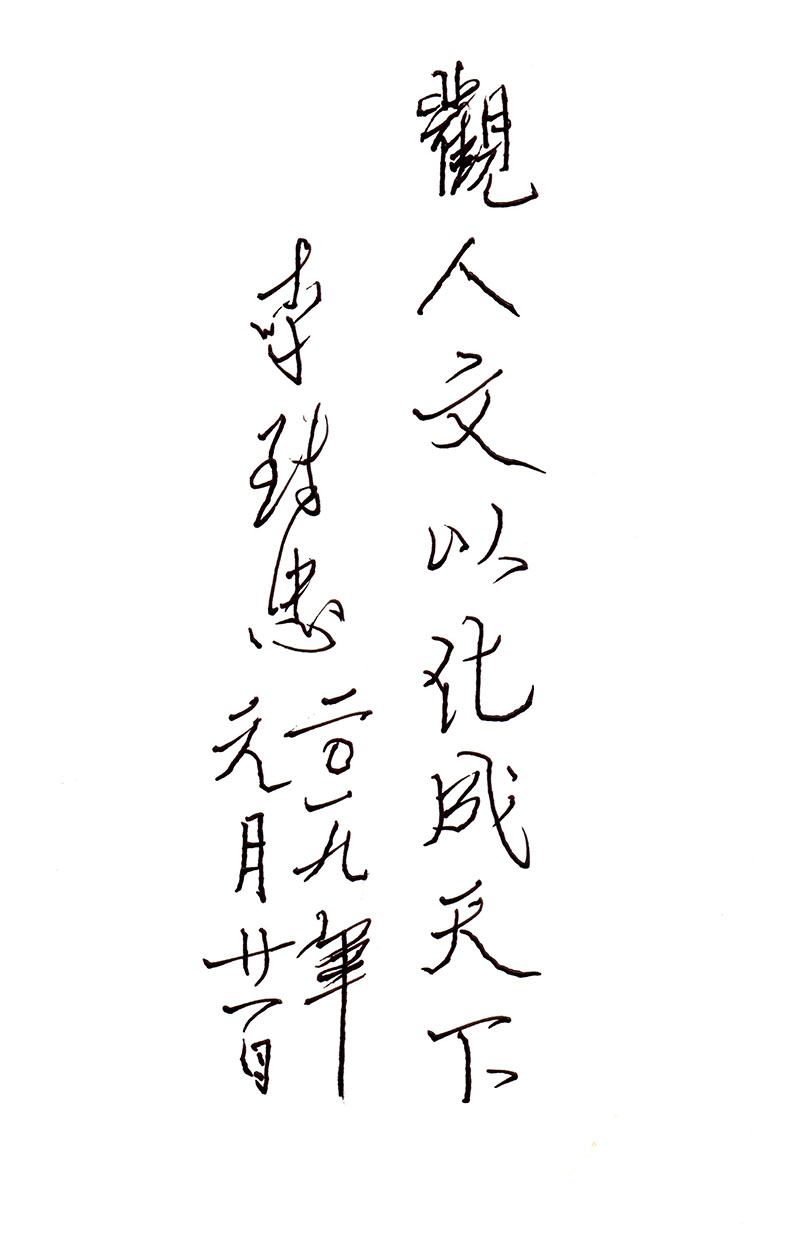 觀人文以化成天下
李
二〇一九年
元月廿一日